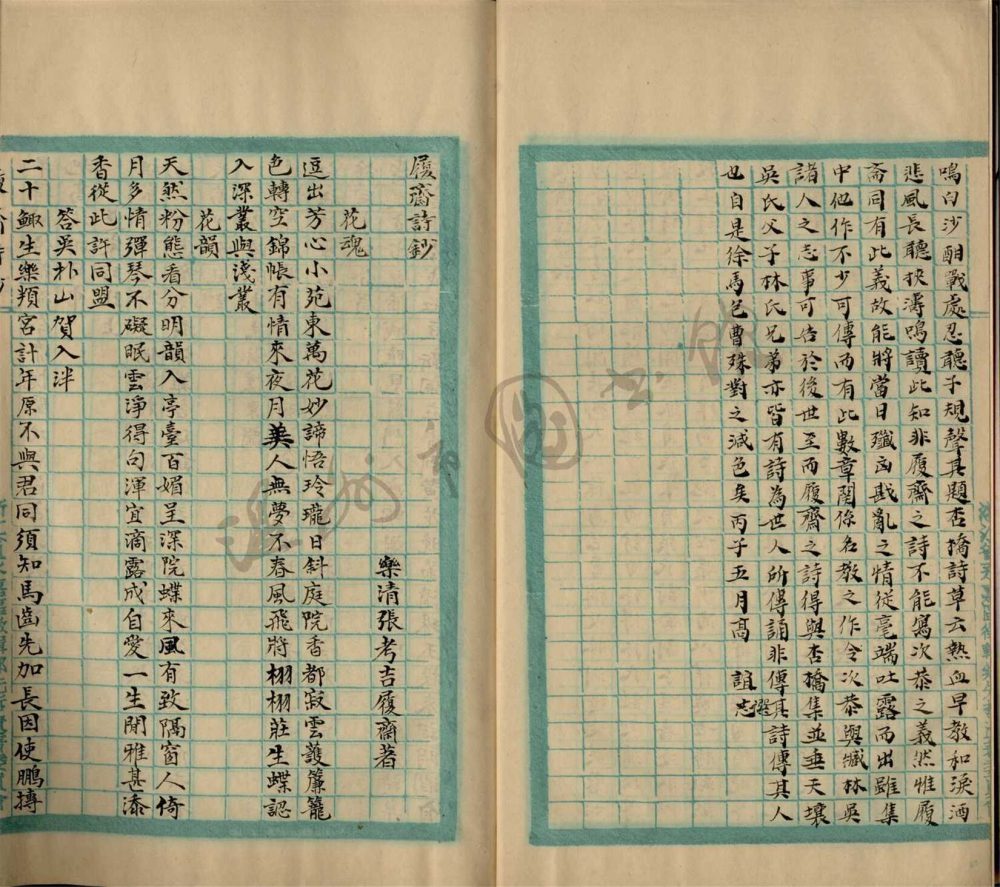 鳴白沙酣戰處忍聽子規聲其題杏撟詩草云熱血早教和淚洒
悲風長聽挾濤鳴讀此知非履齋之詩不能寫次恭之義然惟履
斋同有此義故能將當日殲凶戡亂之情從毫端吐露而出雖集
中他作不少可傳而有此數章関係名教之作令次恭與臧林吳
諸人之志事可告於後世至而履齋之詩得與杏撟集並垂天壤
吳氏父子林氏兄弟亦皆有詩為世人所傳誦非傳其詩傳其人
也自是徐馬包曹殊對之減色矣丙子五月高誼選志
履齋詩鈔
樂清張考吉履齋著
花魂
逗出芳心小苑東萬花妙諦悟玲瓏日斜庭院香都寂雲護簾籠
色轉空錦帳有情來夜月美人無夢不春風飛將栩栩莊生蝶認
入深叢與淺叢
花韻
天然粉態看分明韻入亭臺百媚呈深院蝶來風有致隔窗人倚
月多情彈琴不礙眠雲淨得句渾宜滴露成自愛一生閒雅甚添
香從此許同盟
答吳朴山賀入泮
二十鯫生樂頖宮計年原不與君同須知馬齒先加長因使鵬摶